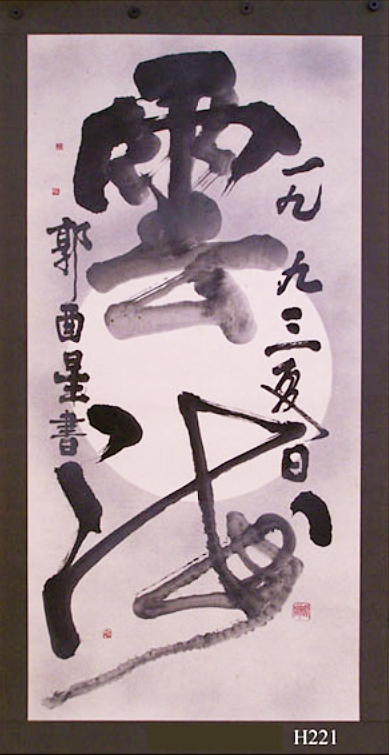 雲海
一九九三夏日
郭酉星書
H221